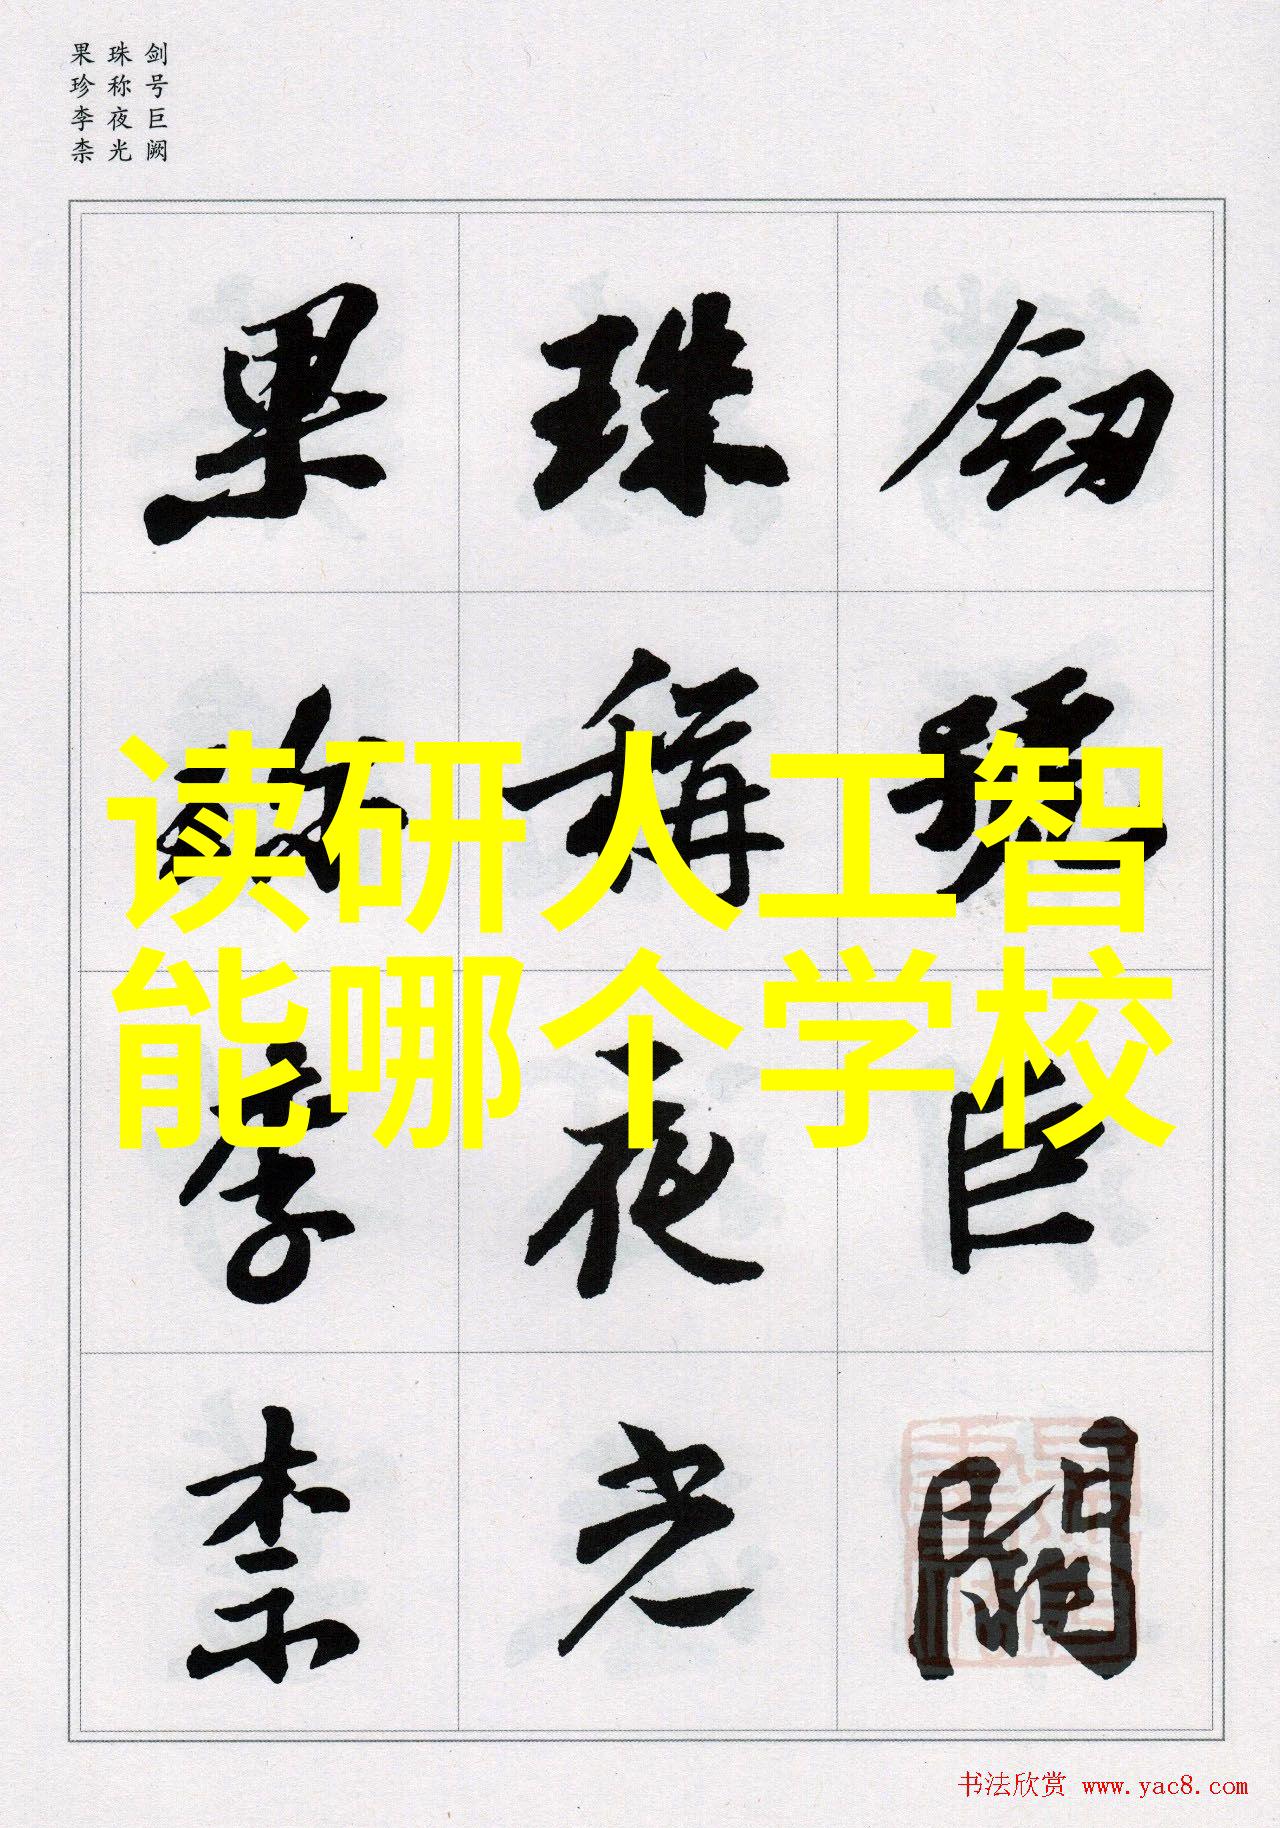 剑号巨阙
珠称夜光
果珍李柰
劍號巨闕
珠稱夜光
果珍李柰
读研人工智
能哪个学校
书法欣赏 www.yac8.com